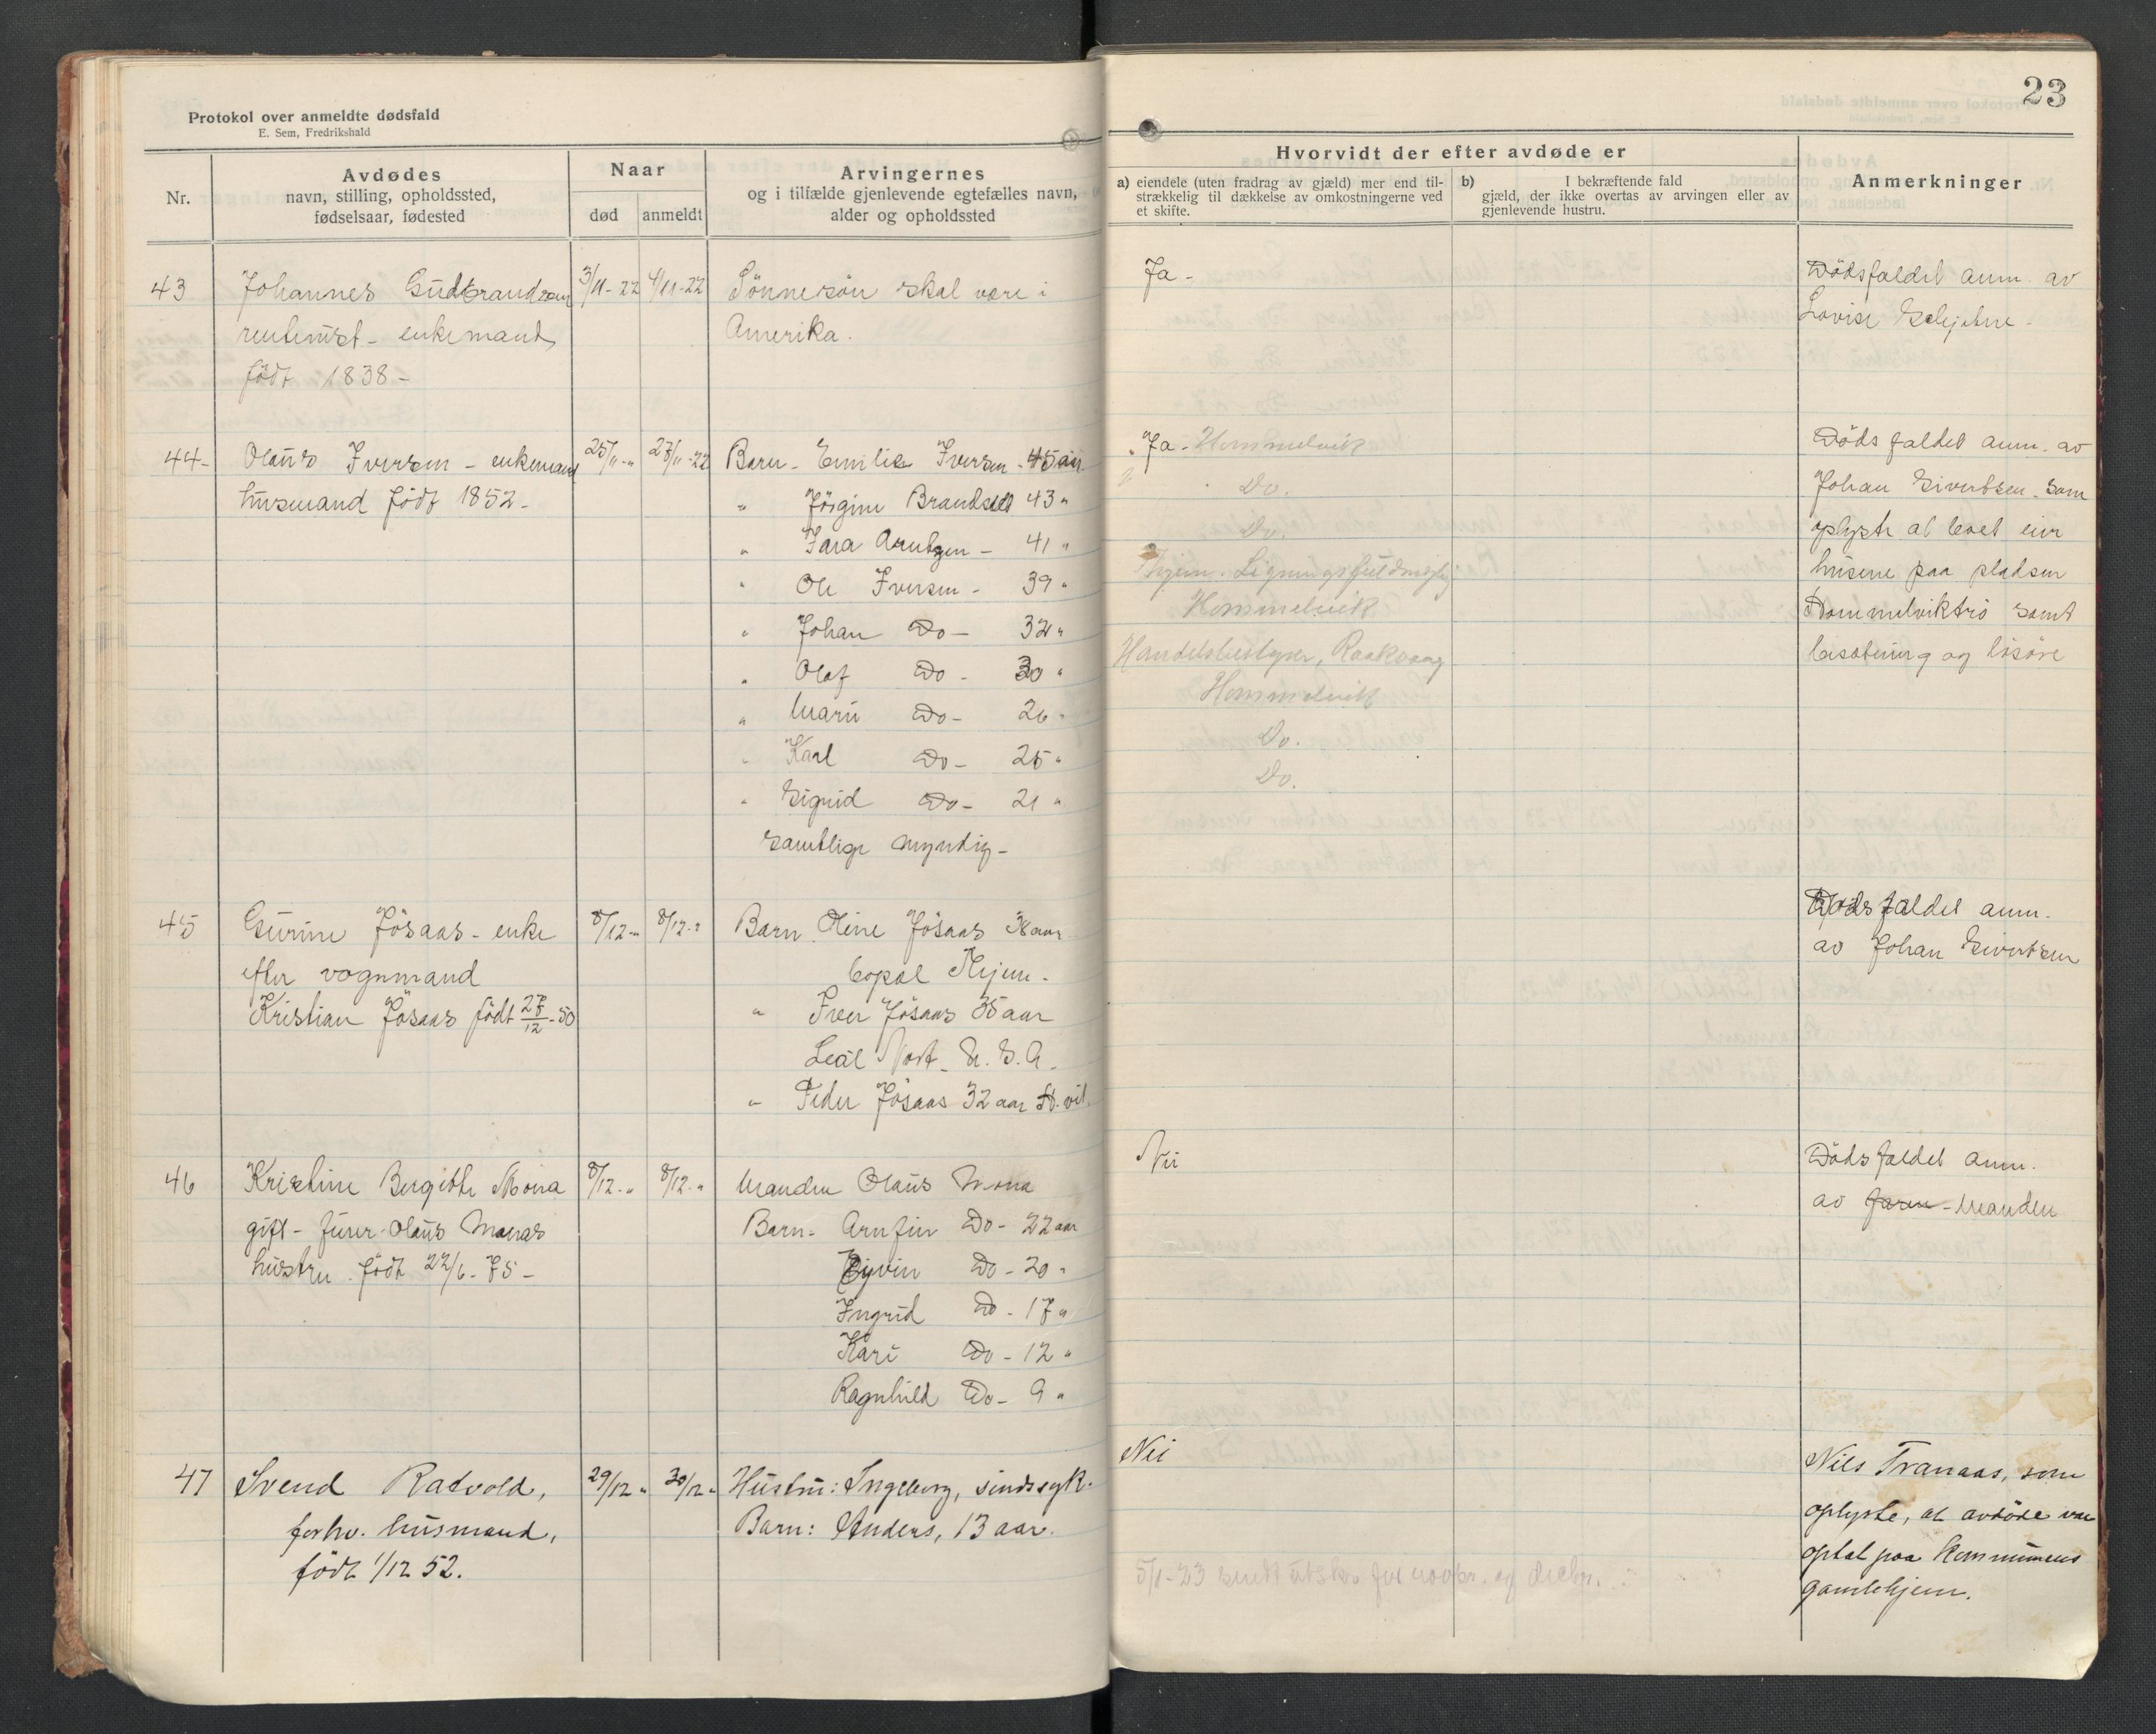 Protokol over anmeldte dødsfald
E. Sem, Fredrikshald
Nr.
Avdødes
navn, stilling, opholdssted,
fødselsaar, fødested
Naar
død
anmeldt
Arvingernes
og i tilfælde gjenlevende egtefælles navn,
alder og opholdssted
43
Johannes Gudbrandsen
rentenist - enkemand
född 1838 -
3/11-22
4/11-22
Sönnesön skal være i
Amerika.
44-
Olaus Iversen - enkemand
husmand född 1852 -
25/11-"
27/11-22
Barn - Emilie Iversen - 45 aar
" Jörgine Brandslet 43 "
" Sara Arntzen - 41 "
" Ole Iversen - 39 "
" Johan Do - 32 "
" Olaf Do - 30 "
" Marie Do - 26 "
" Karl Do - 25 "
" Sigrid Do - 21 "
samtlige myndig -
45
Gurine Jösaas - enke
efter vognmand
Kristian Jösaas födt 27/12-50
8/12-"
8/12-"
Barn Oline Jösaas 38 aar
Copal Thjem -
" Iver Jösaas 35 aar
Leal Nort - U. S. A.
" Peder Jösaas 32 aar H.vik
46
Kristine Bergitte Mona
gift - furer Olaus Monas
hustru. född 22/6-75 -
8/12-"
8/12-"
Manden Olaus Mona
Barn - Arnfin Do - 22 aar
Eyvin Do - 20 "
Ingrid Do - 17 "
Kari Do - 12 "
Ragnhild Do - 9 "
47
Svend Ratvold,
forhv. husmand,
född 1/12 52.
29/12 "
30/12 "
Hustru: Ingeborg, sindssyk.
Barn: Anders, 13 aar.
23
Hvorvidt der efter avdøde er
a) eiendele (uten fradrag av gjæld) mer end til-
strækkelig til dækkelse av omkostningerne ved
et skifte.
b) I bekræftende fald
gjæld, der ikke overtas av arvingen eller av
gjenlevende hustru.
Anmerkninger
Ja -
Dödsfaldet anm. av
Lovise
Ja - Hommelvik
Do.
Do.
Thjem. Ligningsfuldmegtig
Hommelvik
Handelsbestyrer, Raakvaag
Hommelvik
Do.
Do.
Dödsfaldet anm. av
Johan Sivertsen som
oplyste at boet eier
husene paa pladsen
Hommelviktrö samt
besetning og lösöre
Dödsfaldet anm.
av Johan Sivertsen
Nei
Dödsfaldet anm.
av Manden
Nei
Nils Tranaas, som
oplyste, at avdöde var
optat paa kommunens
gamlehjem.
5/1-23 sendt utskr. for novbr. og decbr.